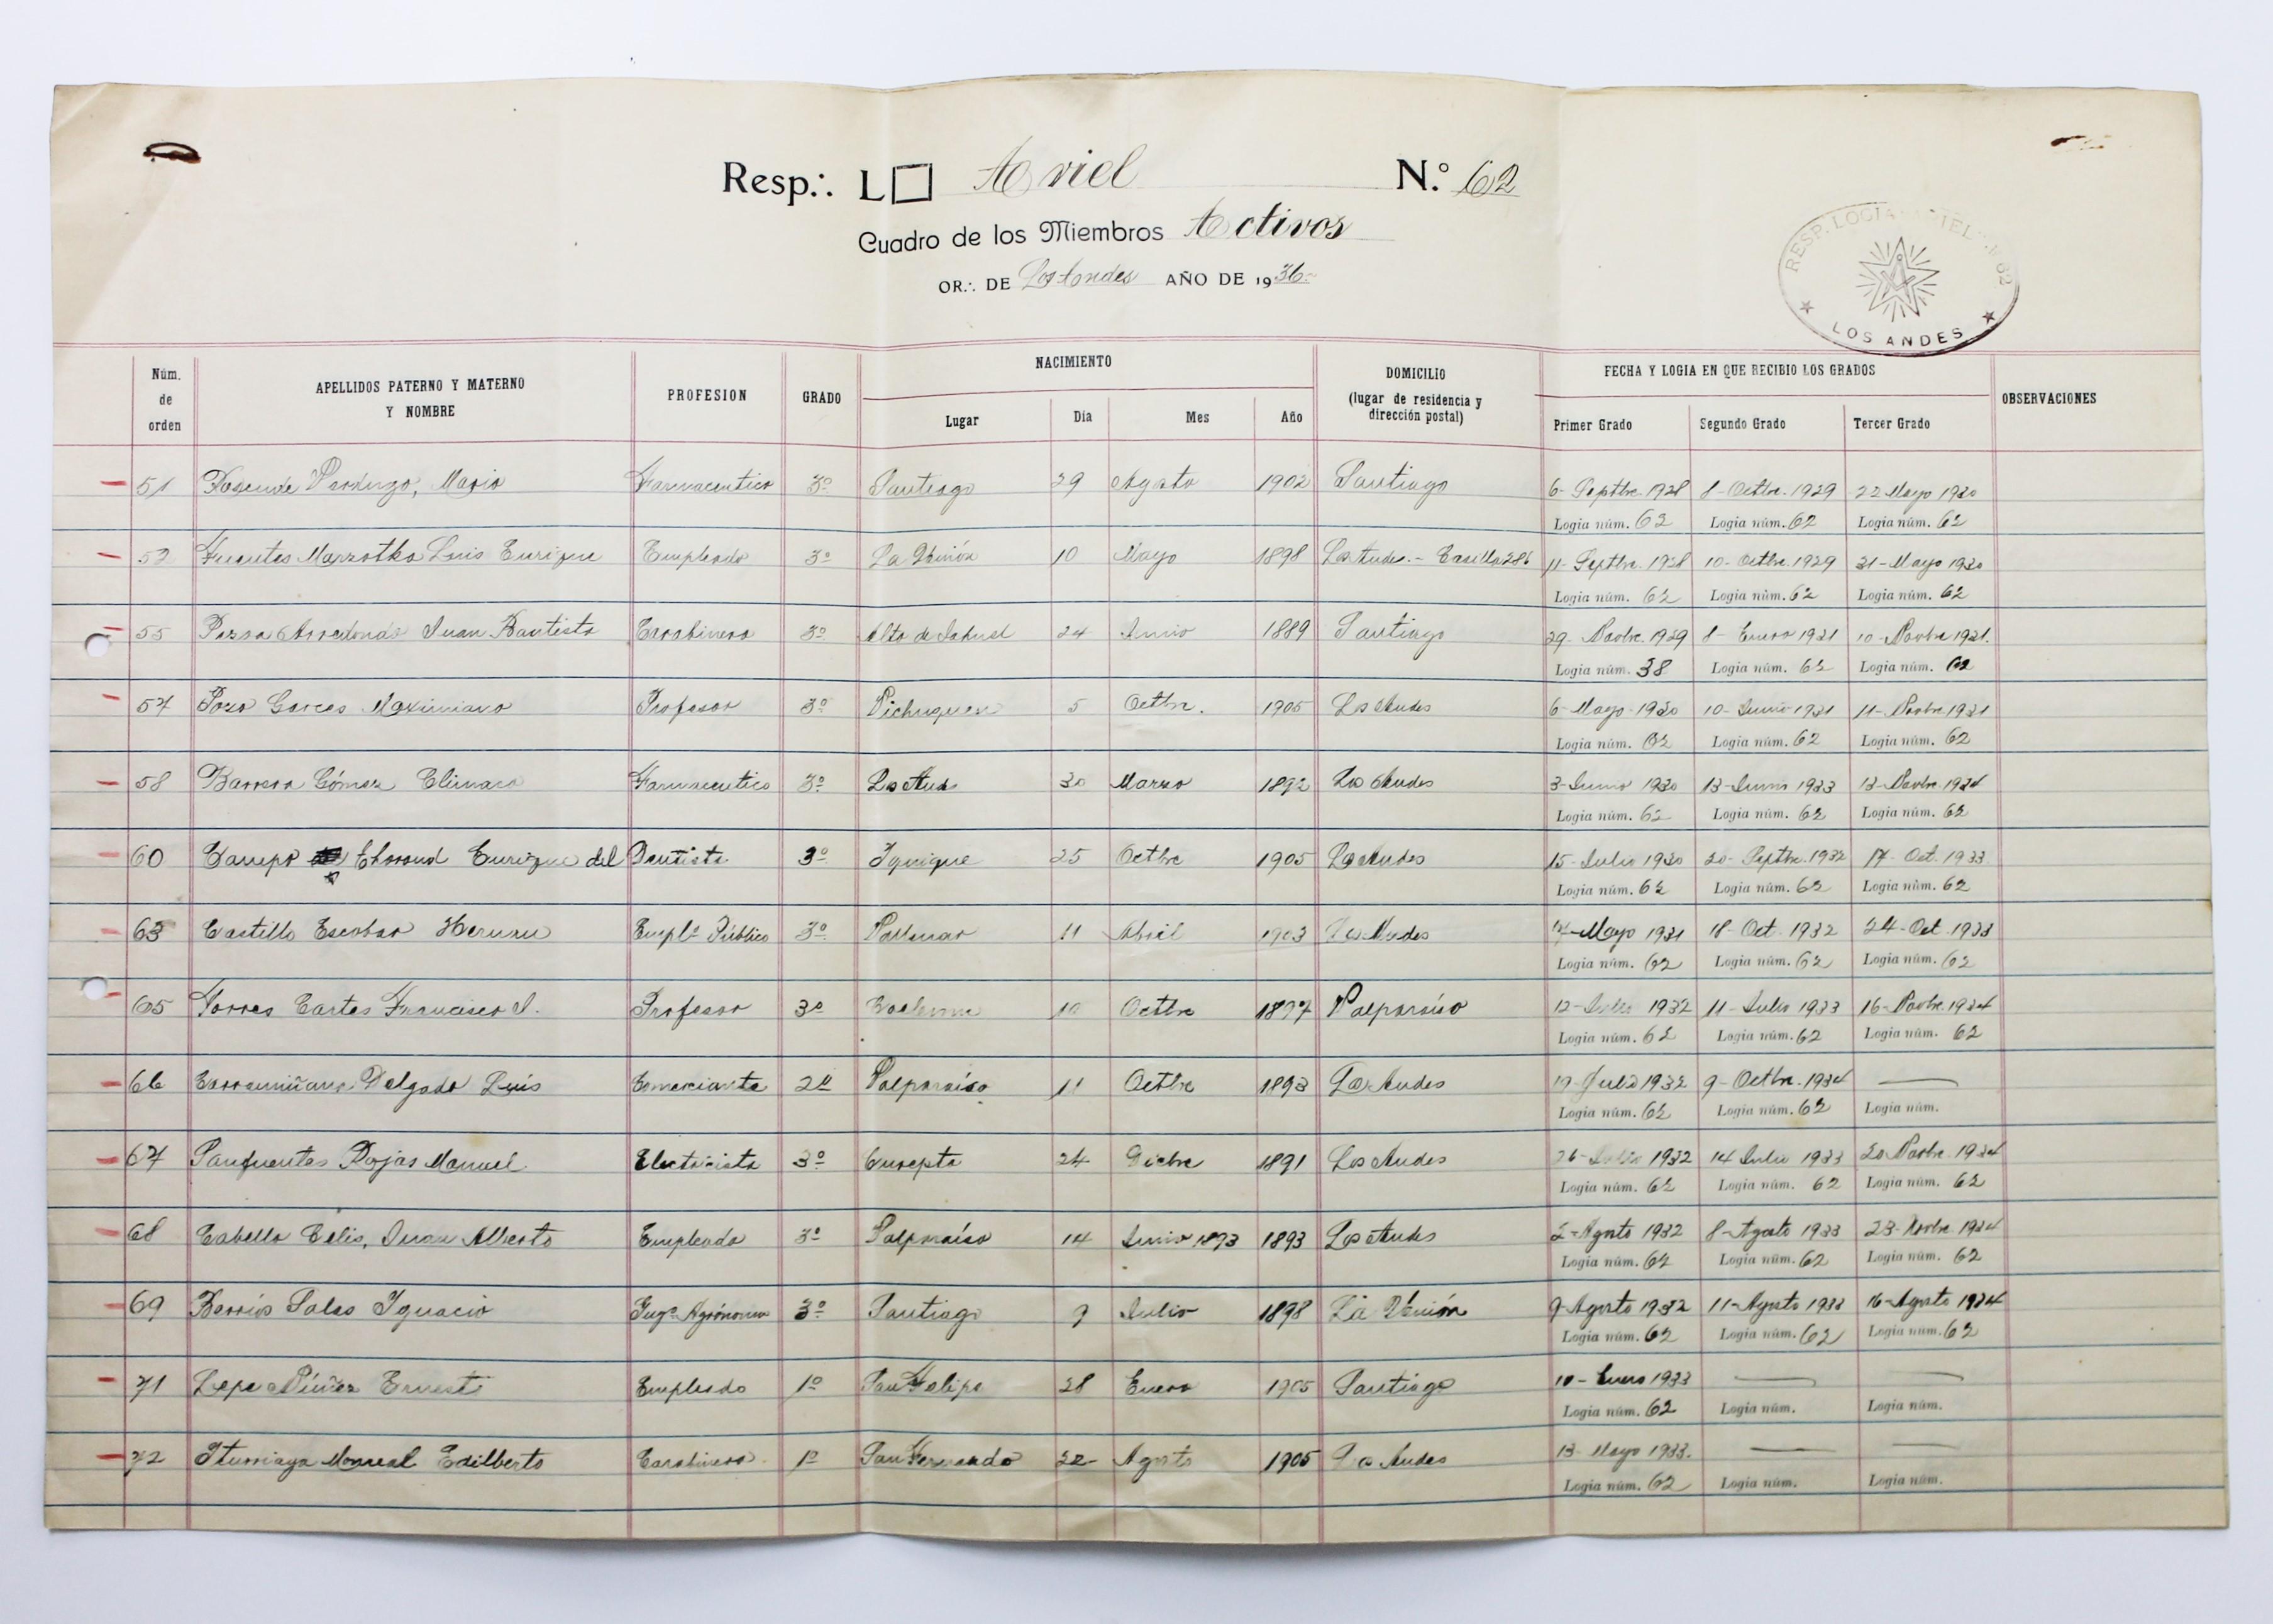 Resp.·. L□ Ariel N.º 62
Cuadro de los Miembros Activos
OR.·. DE Los Andes AÑO DE 1936
RESP. LOGIA 62
LOS ANDES
Núm. de orden APELLIDOS PATERNO Y MATERNO Y NOMBRE PROFESION GRADO NACIMIENTO DOMICILIO (lugar de residencia y dirección postal) FECHA Y LOGIA EN QUE RECIBIO LOS GRADOS OBSERVACIONES
Lugar Día Mes Año Primer Grado Segundo Grado Tercer Grado
51 Mario Farmaceutico 3º Santiago 29 Agosto 1902 Santiago 6- Septbre. 1928 8- Octbre. 1929 22 Mayo 1930
Logia núm. 62 Logia núm. 62 Logia núm. 62
52 Fuentes Luis Enrique Empleado 3º La Unión 10 Mayo 1898 Los Andes.- Casilla 286 11- Septbre. 1928 10- Octbre. 1929 31- Mayo 1930
Logia núm. 62 Logia núm. 62 Logia núm. 62
55 Arredondo Juan Bautista Carabinero 3º Alto de Jahuel 24 Junio 1889 Santiago 29- Novbre. 1929 8- Enero 1931 10- Novbre 1931.
Logia núm. 38 Logia núm. 62 Logia núm. 62
57 Pozo Garces Maximiano Profesor 3º Vichuquen 5 Octbre. 1905 Los Andes 6- Mayo- 1930 10- Junio 1931 11- Novbre 1931
Logia núm. 62 Logia núm. 62 Logia núm. 62
58 Barrera Gómez Climaco Farmaceutico 3º Los Andes 30 Marzo 1892 Los Andes 3- Junio 1930 13- Junio 1933 13- Novbre. 1934
Logia núm. 62 Logia núm. 62 Logia núm. 62
60 Campo Enrique del Dentista 3º Iquique 25 Octbre 1905 Los Andes 15- Julio 1930 20- Septbre. 1932 17- Oct. 1933
Logia núm. 62 Logia núm. 62 Logia núm. 62
63 Castillo Escobar Hernan Emplº Público 3º Vallenar 11 Abril 1903 Los Andes Mayo 1931 18- Oct. 1932 24- Oct. 1933
Logia núm. 62 Logia núm. 62 Logia núm. 62
65 Torres Cartes Francisco J. Profesor 3º 10 Octbre 1897 Valparaíso 12- Julio 1932 11- Julio 1933 16- Novbre. 1934
Logia núm. 62 Logia núm. 62 Logia núm. 62
66 Delgado Luis Comerciante 2º Valparaíso 11 Octbre 1893 Los Andes Julio 1932 9- Octbre. 1934 —
Logia núm. 62 Logia núm. 62 Logia núm.
67 Sanfuentes Rojas Manuel Electricista 3º Curepto 24 Dicbre 1891 Los Andes 26- Julio 1932 14 Julio 1933 20 Novbre. 1934
Logia núm. 62 Logia núm. 62 Logia núm. 62
68 Cabello Celis, Juan Alberto Empleado 3º Valparaíso 14 Junio 1893 1893 Los Andes 2- Agosto 1932 8- Agosto 1933 23- Novbre. 1934
Logia núm. 62 Logia núm. 62 Logia núm. 62
69 Berríos Salas Ignacio Ingº Agrónomo 3º Santiago 9 Julio 1898 La Unión 9- Agosto 1932 11- Agosto 1933 16- Agosto 1934
Logia núm. 62 Logia núm. 62 Logia núm. 62
71 Lepe Núñez Ernesto Empleado 1º San Felipe 28 Enero 1905 Santiago 10- Enero 1933 — —
Logia núm. 62 Logia núm. Logia núm.
72 Iturriaga Monreal Edilberto Carabinero 1º San Fernando 22 Agosto 1905 Los Andes 13- Mayo 1933. — —
Logia núm. 62 Logia núm. Logia núm.